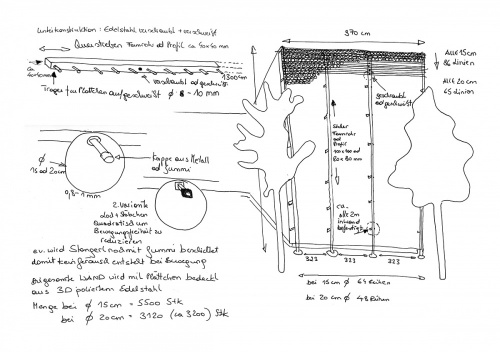 Unterkonstruktion : Edelstahl verschraubt + verschweißt
Querstreben Formrohr od Profil ca 40x40 mm
ca
40x40mm
1300 cm
verschraubt od geschweißt
Träger für Plättchen aufgeschweißt Ø 8 - 10 mm
Ø
15 od 20cm
0,8-1 mm
Kappe aus Metall
od Gummi
2. Variante
Loch + Stäbchen
Quadratisch um
Bewegungsfreiheit zu
reduzieren
ev. wird Stangerl noch mit Gummi beschichtet
damit kein Geräusch entsteht bei Bewegung
Die gesamte WAND wird mit Plättchen bedeckt
aus 3D poliertem Edelstahl
Menge bei Ø 15cm = 5500 Stk
bei Ø 20cm = 3120 (ca 3200) Stk
970 cm
Alle 15 cm
86 Linien
Alle 20 cm
65 Linien
geschraubt
od geschweißt
Steher
Formrohr
od
Profil
100x100 od
80x80 mm
ca.
alle 2m
in Wand
befestigt
323
323
323
bei 15cm Ø 64 Reihen
bei 20cm Ø 48 Reihen